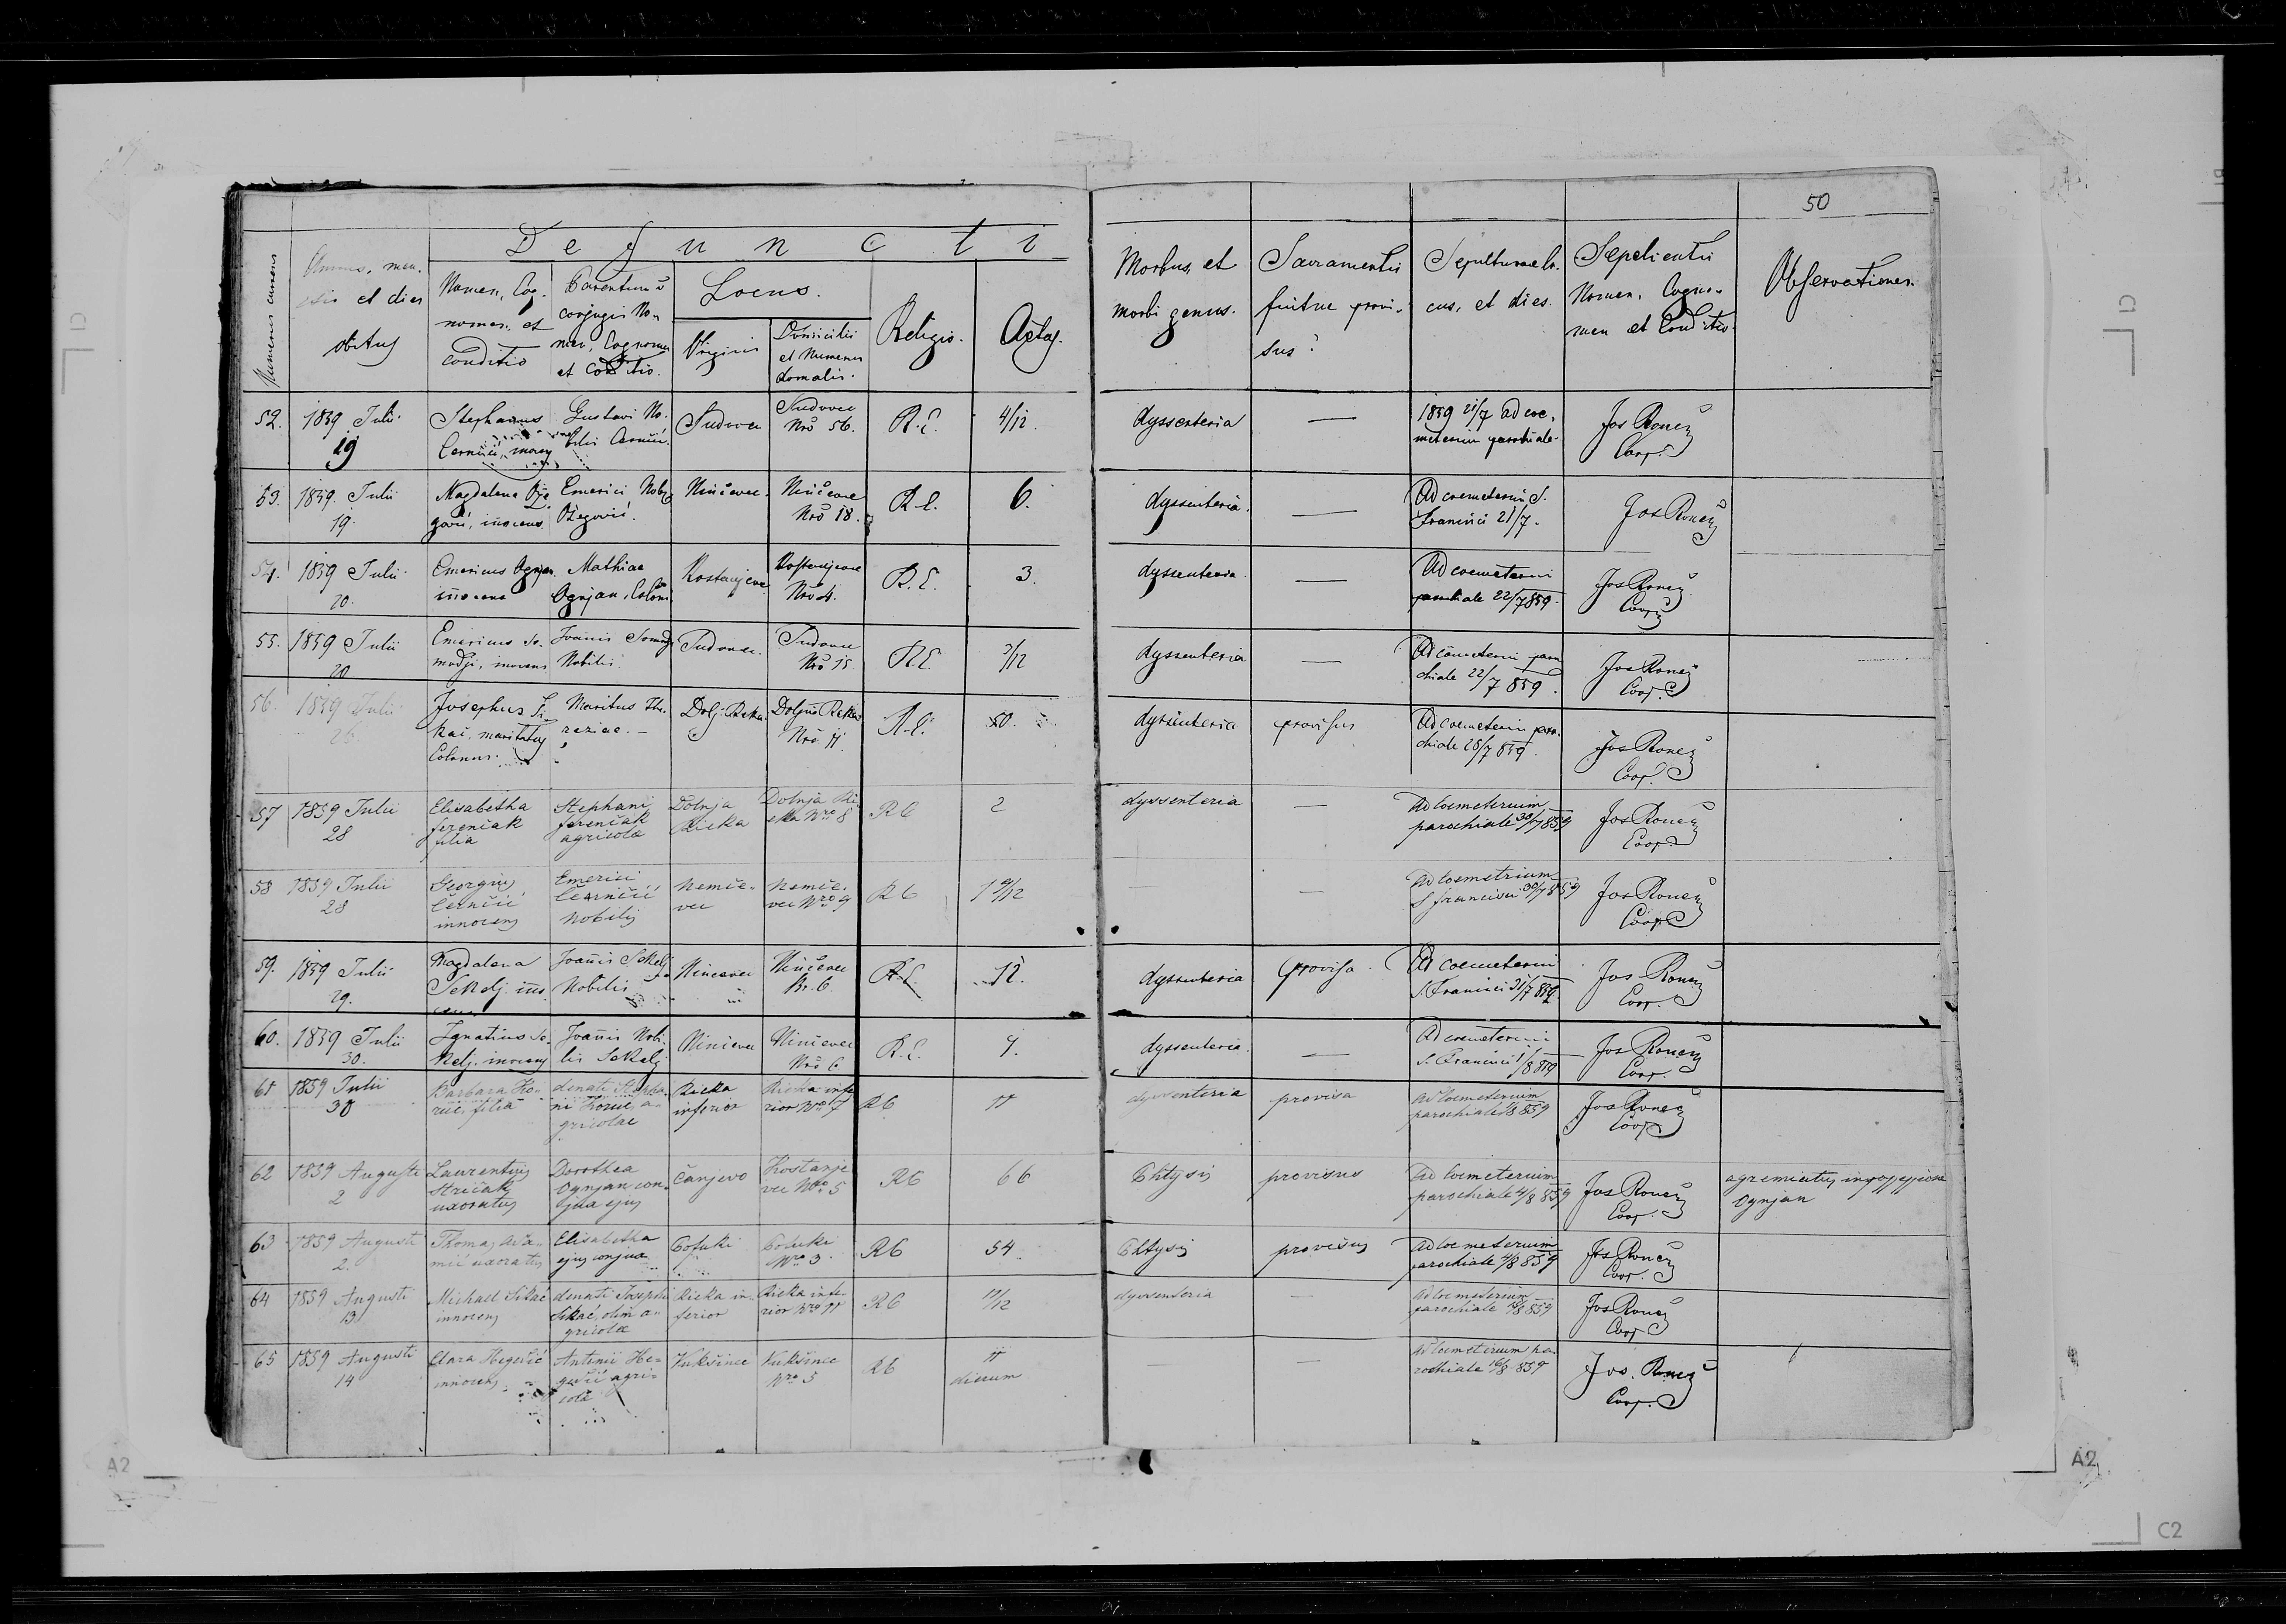 50
Defuncti
Numerus currens
Annus, men-
sis et dies
obitus
Nomen, Cog-
nomen et
conditio
Parentum v
conjugis No-
men, Cognomen
et Conditio.
Locus.
Originis
Domicilii
et Numerus
domalis.
Religio.
Aetas.
Morbus, et
morbi genus.
Sacramentis
fuitne provi-
sus?
Sepulturae lo-
cus, et dies.
Sepelientis
Nomen, Cogno-
men et Conditio.
Observationes.
52. 1859 Julii
19
Stephanus
Černčić,
Gustavi No-
bilis
Sudovec
Sudovec
Nro 56.
R.C. 4/12.
dyssenteria —
1859 21/7 ad coe-
meterium parochiale.
Jos
Coop.
53. 1859. Julii
19.
Magdalena Ože-
gović, innocens.
Emerici Nobs
Ožegović.
Ninčevec.
Ninčevec
Nro 18.
R.C. 6.
dyssenteria. —
Ad coemeterium S.
Francisci 21/7.
Jos
54. 1859 Julii
20.
Emericus Ognjan
innocens
Mathiae
Ognjan, Coloni
Kostanjevec
Kostanjevec
Nro 4.
R.C. 3.
dyssenteria. —
Ad coemeterium
parochiale 22/7 859.
Jos
Coop
55. 1859 Julii
20
Emericus So-
modji, innocens
Joannis Somodji
Nobilis.
Sudovec.
Sudovec
Nro 15
R.C. 3/12
dyssenteria —
Ad coemeterium paro-
chiale 22/7 859.
Jos
Coop.
56. 1859 Julii
26
Josephus Si-
kač, maritatus
Colonus.
Maritus The-
reziae. —
Dolj. Reka.
Doljna Reka
Nro 11.
R.C. 50.
dyssenteria provisus
Ad coemeterium paro-
chiale 28/7 859.
Jos
Coop.
57 1859 Julii
28
Elisabetha
ferenčak
filia
Stephani
ferenčak
agricolae
Dolnja
Rieka
Dolnja Ri-
eka Nro 8
RC 2
dyssenteria —
Ad Coemeterium
parochiale 30/7 859
Jos
Coop.
58 1859 Julii
28
Georgius
Černčić
innocens
Emerici
Černčić
Nobilis
Nemče-
vec
Nemče-
vec Nro 9
RC
—
Ad Coemetrium
S francisci 30/7 859
Jos
Coop
59. 1859 Julii
29.
Magdalena
Sekelj. inno-
cens
Joannis Sekelj
Nobilis
Nincevec
Ninčevec
Nr. 6
R.C. 12.
dyssenteria provisa.
Ad coemeterium
S. Francisci 31/7 859.
Jos
Coop.
60. 1859 Julii
30.
Ignatius Se-
kelj. innocens
Joannis Nobi-
lis Sekelj
Ninčevec
Ninčevec
Nro 6
R.C.
dyssenteria. —
Ad coemeterium
S. Francisci 1/8 859
Jos
Coop.
61 1859 Julii
30
Barbara
filia
denati Stepha-
ni a-
gricolae
Rieka
inferior
Rieka infe
rior Nro 7
RC 11
dyssenteria provisa
Ad Coemeterium
parochiale 1/8 859
Jos
Coop
62 1859 Augusti
2
Laurentius
Stričak
uxoratus
Dorothea
Ognjan con-
jux ejus
Čanjevo
Kostanje
vec Nro 5
RC 66
Phtysis provisus
Ad Coemeterium
parochiale 4/8 859
Jos
Coop.
agremiatus in possessione
Ognjan
63 1859 Augusti
2.
Thomas Ada-
mić uxoratus
Elisabetha
ejus conjux
Pofuki
Pofuki
Nro 3.
RC 54
Phtysis provisus
Ad Coemeterium
parochiale 4/8 859
Jos
Coop.
64 1859 Augusti
13
Michael Sikač
innocens
denati Josephi
Sikač, olim a-
gricolae
Rieka in-
ferior
Rieka infe-
rior Nro 11
RC 11/12
dyssenteria —
Ad Coemeterium
parochiale 859
Jos
Coop
65 1859 Augusti
14
Clara Hegečić
innocens
Antonii He-
gečić agri-
colae
Vukšinec
Vukšinec
Nro 5
RC 11
dierum
— —
Ad Coemeterium pa-
rochiale 16/8 859
Jos.
Coop.
A2
A2
C2